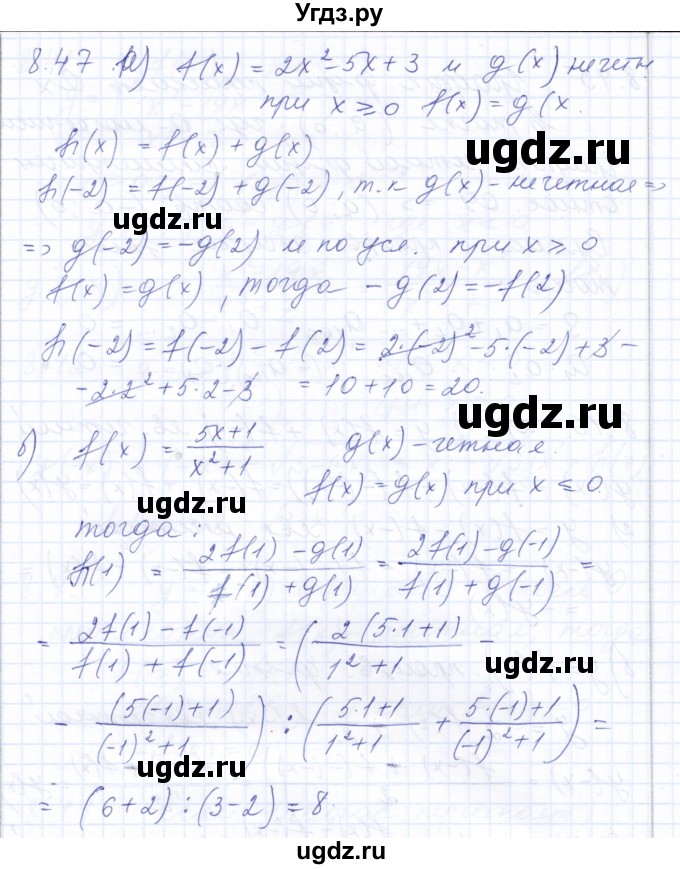 Угдз.ру
8.47 а) f(x) = 2x² - 5x + 3 и g(x) нечетн.
при x ⩾ 0 f(x) = g(x
h(x) = f(x) + g(x)
h(-2) = f(-2) + g(-2), т.к g(x) - нечетная =>
ugdz.ru
=> g(-2) = -g(2) и по усл. при x ⩾ 0
f(x) = g(x), тогда - g(2) = -f(2)
h(-2) = f(-2) - f(2) = 2·(-2)² - 5·(-2) + 3 -
- 2·2² + 5·2 - 3 = 10 + 10 = 20.
ugdz.ru
б) f(x) = (5x+1)/(x²+1) g(x) - четная.
f(x) = g(x) при x ⩽ 0
ugdz.ru
тогда:
h(1) = (2f(1) - g(1))/(f(1) + g(1)) = (2f(1) - g(-1))/(f(1) + g(-1)) =
= (2f(1) - f(-1))/(f(1) + f(-1)) = ((2(5·1+1))/(1²+1) -
ugdz.ru
- (5(-1)+1)/((-1)²+1)) : ((5·1+1)/(1²+1) + (5·(-1)+1)/((-1)²+1)) =
ugdz.ru
= (6+2) : (3-2) = 8
ugdz.ru